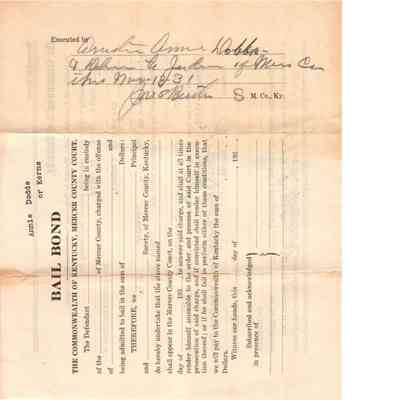 Executed by
Annie
this Nov 1931
S. M. Co., Ky.
Annie Dodds
or Kerns
BAIL BOND
THE COMMONWEALTH OF KENTUCKY, MERCER COUNTY COURT.
The Defendant being in custody
of the of Mercer County, charged with the offense
of and
being admitted to bail in the sum of Dollars
THEREFORE, we Principal
and Surety, of Mercer County, Kentucky,
do hereby undertake that the above named
shall appear in the Mercer County Court, on the
day of 193 , to answer said charge, and shall at all times
render himself amenable to the order and process of said Court in the
prosecution of said charge, and if convicted shall render himself in execu-
tion thereof; or if he fail to perform either of these conditions, that
we will pay to the Commonwealth of Kentucky the sum of
Dollars.
Witness our hands, this day of 193
Subscribed and acknowledged
in presence of